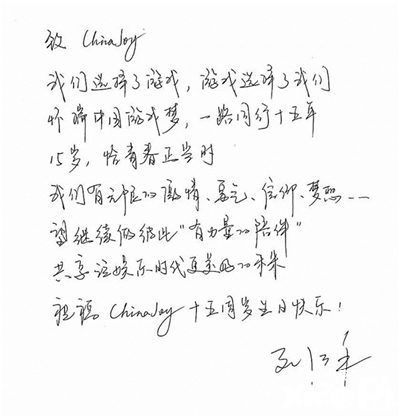 致 ChinaJoy
我们选择了游戏，游戏选择了我们
怀揣中国游戏梦，一路同行十五年
15岁，恰青春正当时
我们有的激情、勇气、信仰、梦想……
请继续做彼此“有力量的陪伴”
共享泛娱乐时代更美好的未来
祝福ChinaJoy十五周岁生日快乐！